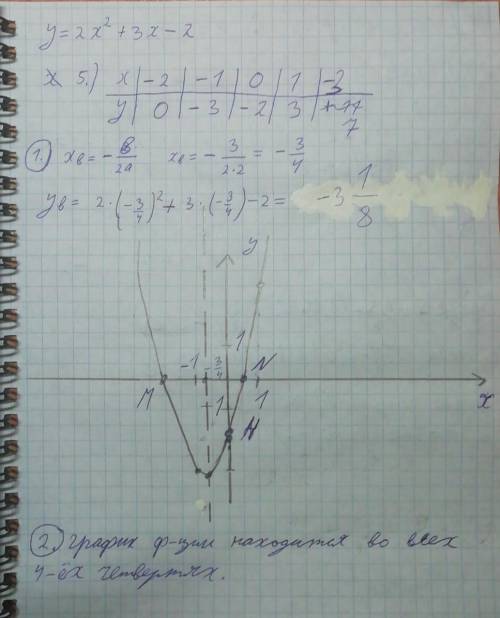 y = 2x² + 3x - 2
5.) x | -2 | -1 | 0 | 1 | -3
y | 0 | -3 | -2 | 3 | 7
1. xв = - в/2a xв = - 3/2·2 = - 3/4
yв = 2·(-3/4)² + 3·(-3/4) - 2 = -3 1/8
y
1
-1 -3/4 N
M 1 1 x
H
2. График ф-ции находится во всех
4-ёх четвертях.